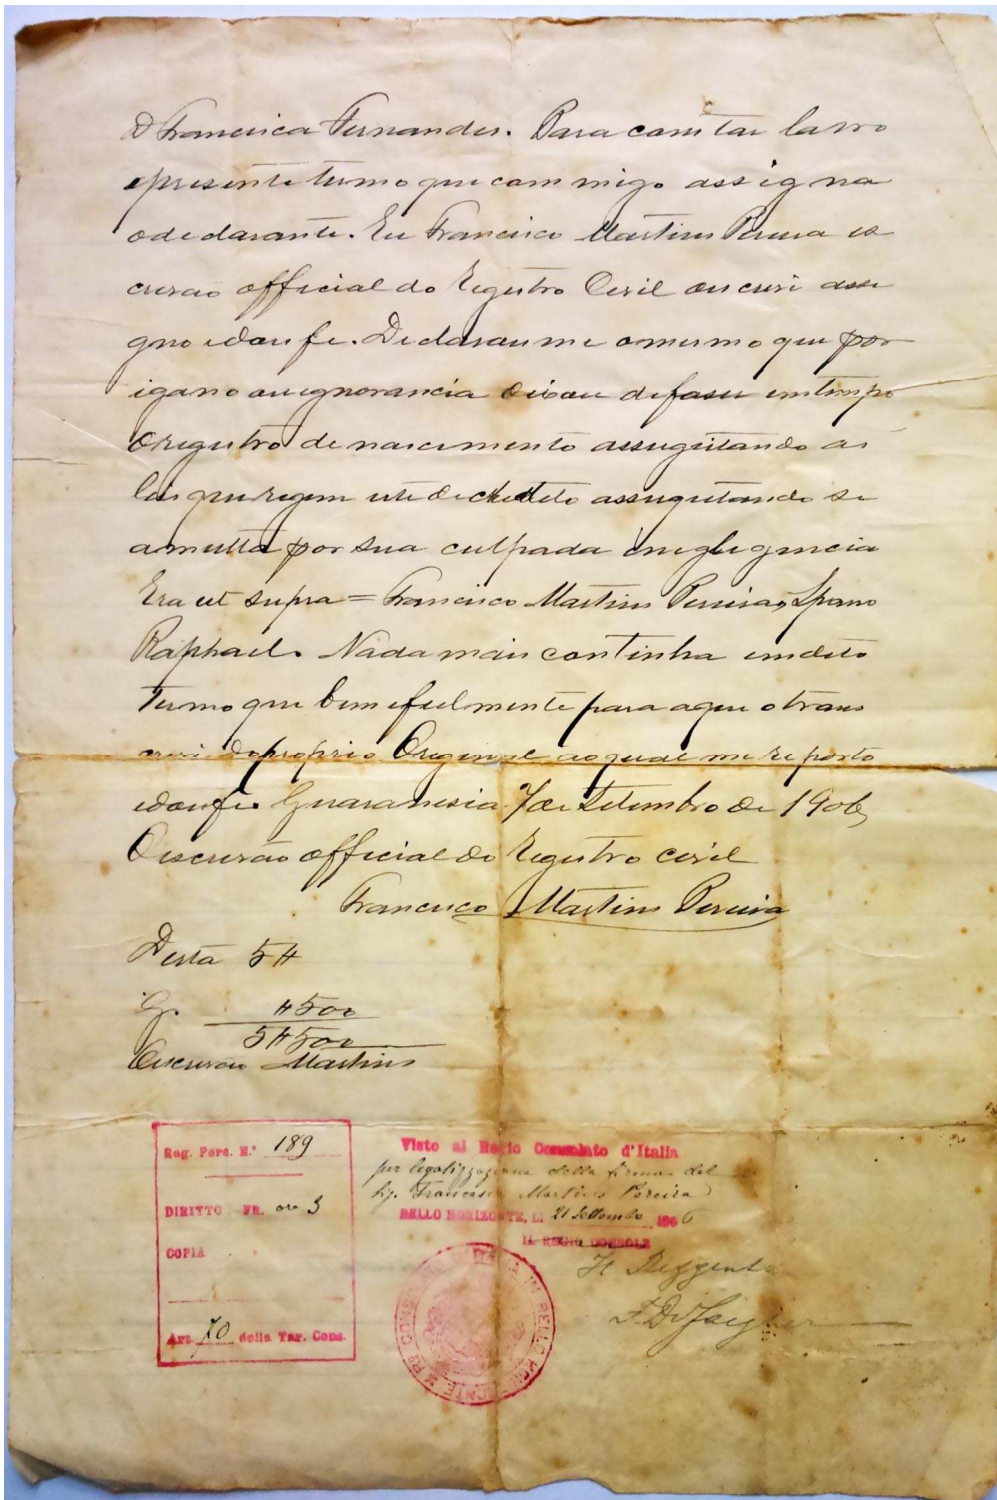 D Francisca Fernandes. Para constar lavro
o presente termo que commigo assigna
o declarante. Eu Francisco Martins Pereira es
crivão official do Registro Civil escrevi assi
gno e dou fé. Declarou me o mesmo que por
engano ou ignorancia deixou de faser em tempo
o registro de nascimento assugeitando as
leis que regem este decreto assugeitando se
a multa por sua culpada negligencia
Era ut supra = Francisco Martins Pereira, Spano
Raphael. Nada mais continha em dito
termo que bem e fielmente para aqui o trans
crevi do proprio Original ao qual me reporto
e dou fé. Guaranesia 7 de Setembro de 1906,
O escrivão official do Registro civil
Francisco Martins Pereira
Desta 5#
G. #500
5#500
O escrivão Martins
Reg. Perc. N.° 189
DIRITTO FR. oro 3
COPIA
Art. 70 della Tar. Cons.
Visto al Regio Consolato d'Italia
per legalizzazione della firma del
Sig. Francisco Martins Pereira
BELLO HORIZONTE, Li 21 Settembre 1906
IL REGIO CONSOLE
Il Reggente